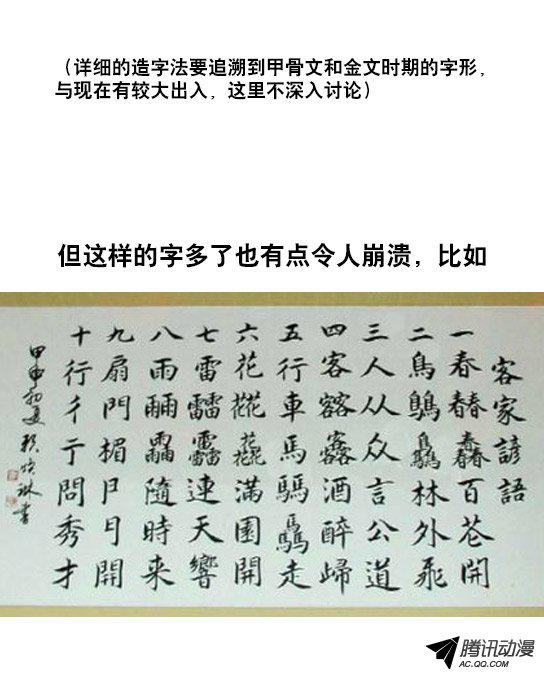 （详细的造字法要追溯到甲骨文和金文时期的字形，
与现在有较大出入，这里不深入讨论）
但这样的字多了也有点令人崩溃，比如
客家諺語
一春百花開
二鳥林外飛
三人从众言公道
四客酒醉歸
五行車馬驫走
六花滿園開
七雷連天響
八雨隨時来
九扇門楣開
十行彳亍問秀才
甲申初夏書
腾讯动漫
AC.QQ.COM